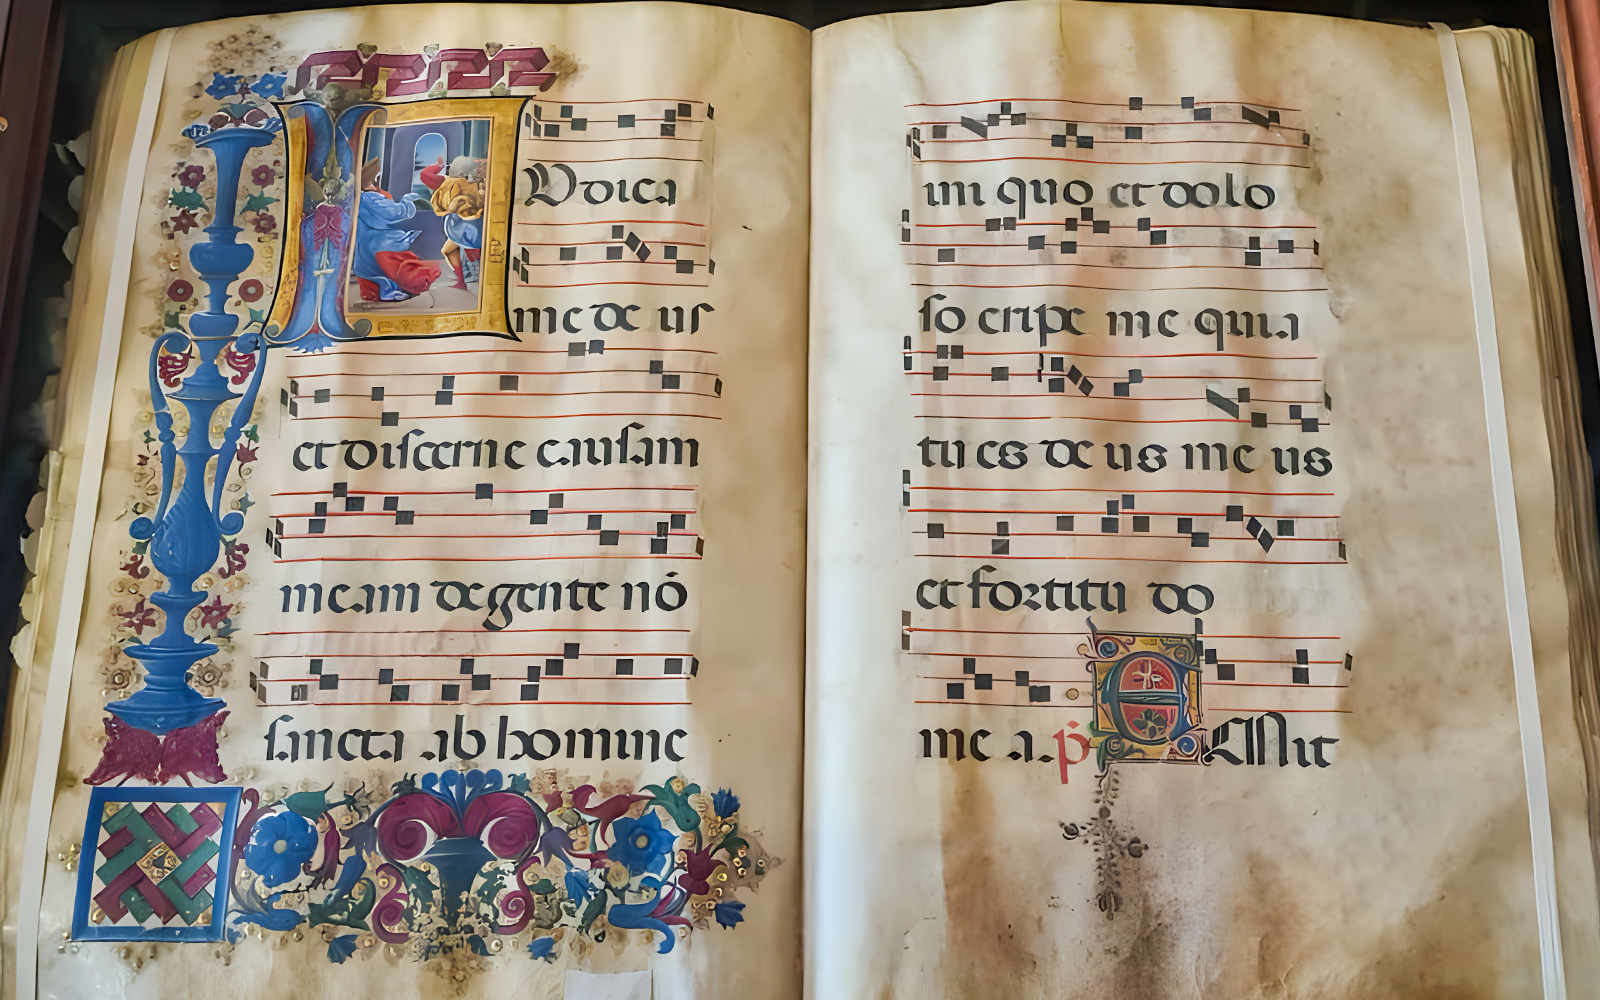 IVdica
me de us
et discerne causam
meam de gente nō
sancta ab homine
ini quo et dolo
so eripe me quia
tu es de us me us
et fortitu do
me a. p̄ Emit